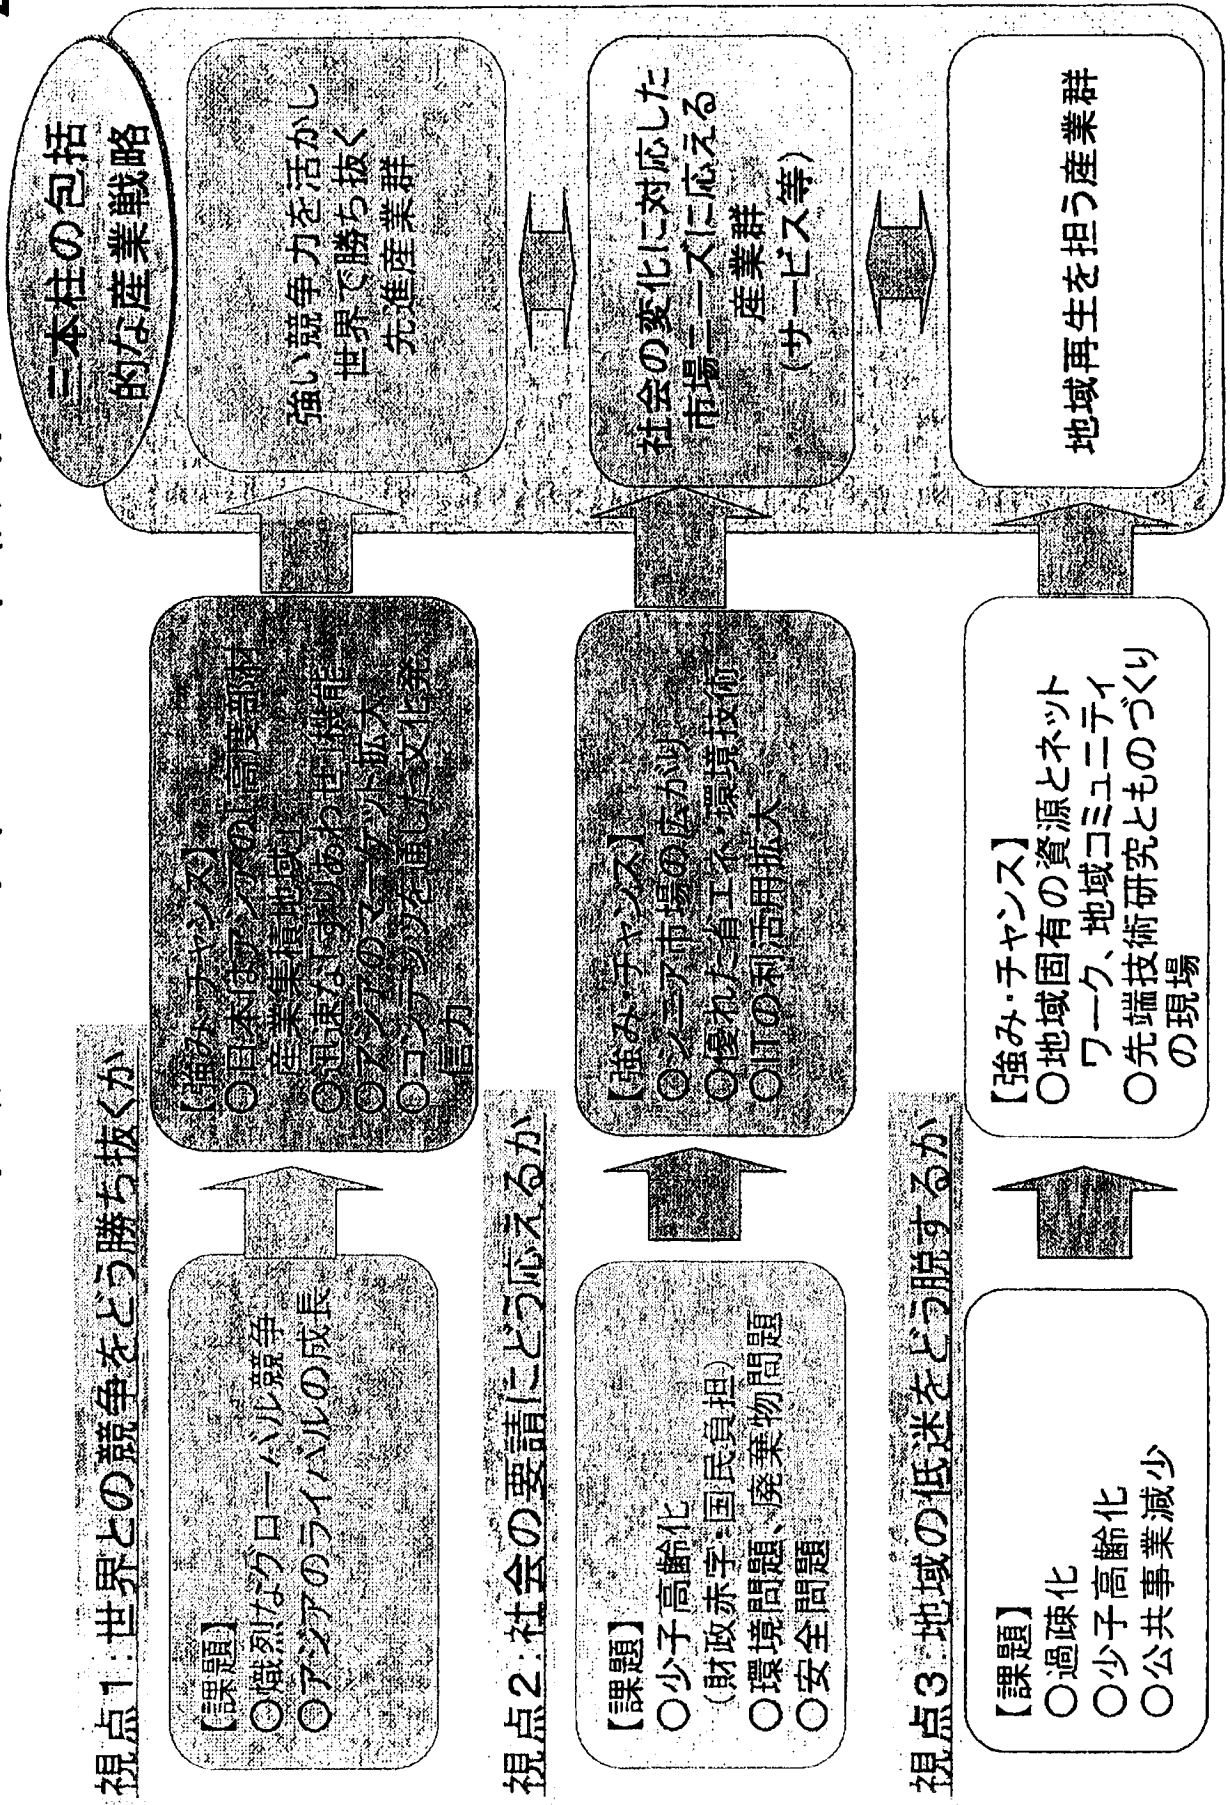 三本柱の包括
的な産業戦略
視点1:世界との競争をどう勝ち抜くか
【課題】
○熾烈なグローバル競争
○アジアのライバルの成長
【強み・チャンス】
○日本はアジアの「高度部材
産業集積地域」
○迅速な「すりあわせ」機能
○アジアのマーケット拡大
○コンテンツを通した文化発
信力
強い競争力を活かし
世界で勝ち抜く
先進産業群
視点2:社会の要請にどう応えるか
【課題】
○少子高齢化
(財政赤字・国民負担)
○環境問題、廃棄物問題
○安全問題
【強み・チャンス】
○シニア市場の広がり
○優れた省エネ・環境技術
○ITの利活用拡大
社会の変化に対応した
市場ニーズに応える
産業群
(サービス等)
視点3:地域の低迷をどう脱するか
【課題】
○過疎化
○少子高齢化
○公共事業減少
【強み・チャンス】
○地域固有の資源とネット
ワーク、地域コミュニティ
○先端技術研究とものづくり
の現場
地域再生を担う産業群